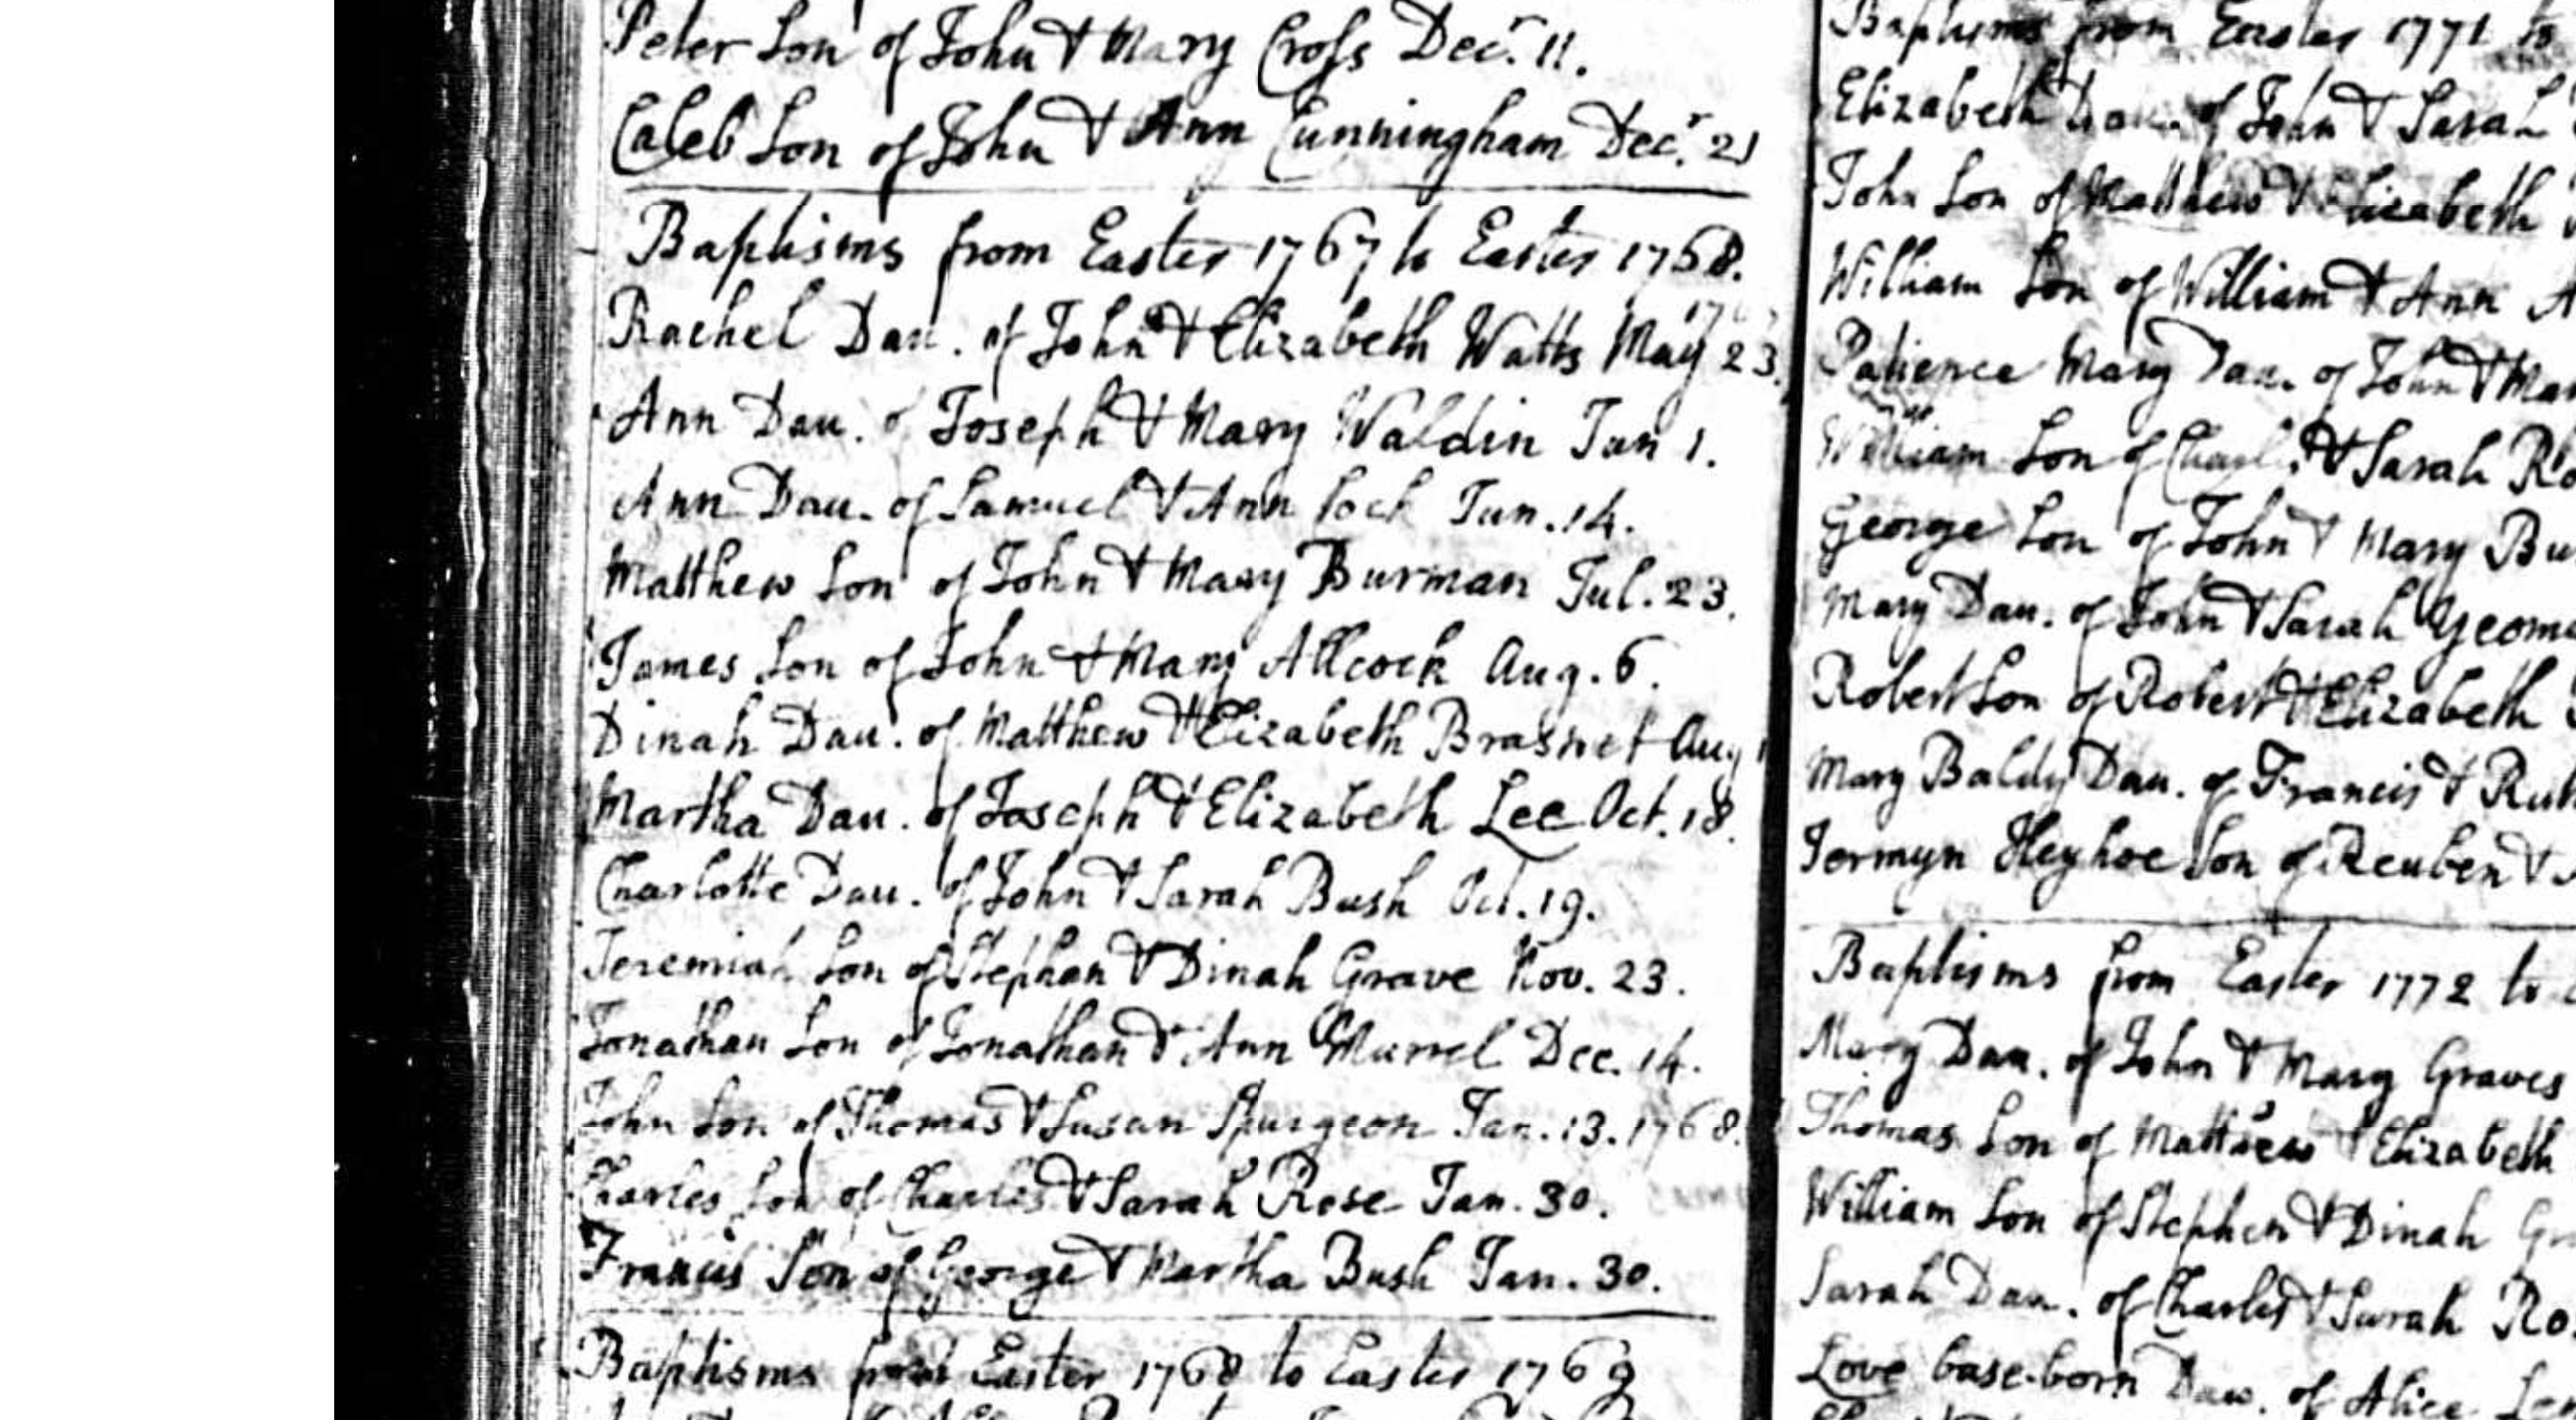 Peter Son of John & Mary Cross Decr. 11.
Caleb Son of John & Ann Cunningham Decr. 21
Baptisms from Easter 1767 to Easter 1768.
Rachel Dau. of John & Elizabeth Watts May 23.
Ann Dau. of Joseph & Mary Waldin Jun 1.
Ann Dau. of Samuel & Ann Jun. 14.
Matthew Son of John & Mary Burman Jul. 23.
James Son of John & Mary Allcock Aug. 6.
Dinah Dau. of Matthew & Elizabeth Brasnet Aug
Martha Dau. of Joseph & Elizabeth Lee Oct. 18.
Charlotte Dau. of John & Sarah Bush Oct. 19.
Jeremiah Son of Stephan & Dinah Grave Nov. 23.
Jonathan Son of Jonathan & Ann Murrel Dec. 14.
John Son of Thomas & Susan Spurgeon Jan. 13. 1768.
Charles Son of Charles & Sarah Rose Jan. 30.
Francis Son of George & Martha Bush Jan. 30.
Baptisms from Easter 1768 to Easter 1769
Baptisms from Easter 1771 to
Elizabeth Dau. of John & Sarah
John Son of Matthew & Elizabeth
William Son of William & Ann A
Patience Mary Dau. of John & Ma
William Son of Charles & Sarah Ro
George Son of John & Mary Bu
Mary Dau. of John & Sarah Yeom
Robert Son of Robert & Elizabeth
Mary Baldy Dau. of Francis & Ruth
Jermyn Heyhoe Son of Reuben &
Baptisms from Easter 1772 to
Mary Dau. of John & Mary Graves
Thomas Son of Matthew & Elizabeth
William Son of Stephen & Dinah Gr
Sarah Dau. of Charles & Sarah Ro
Love base-born Dau. of Alice